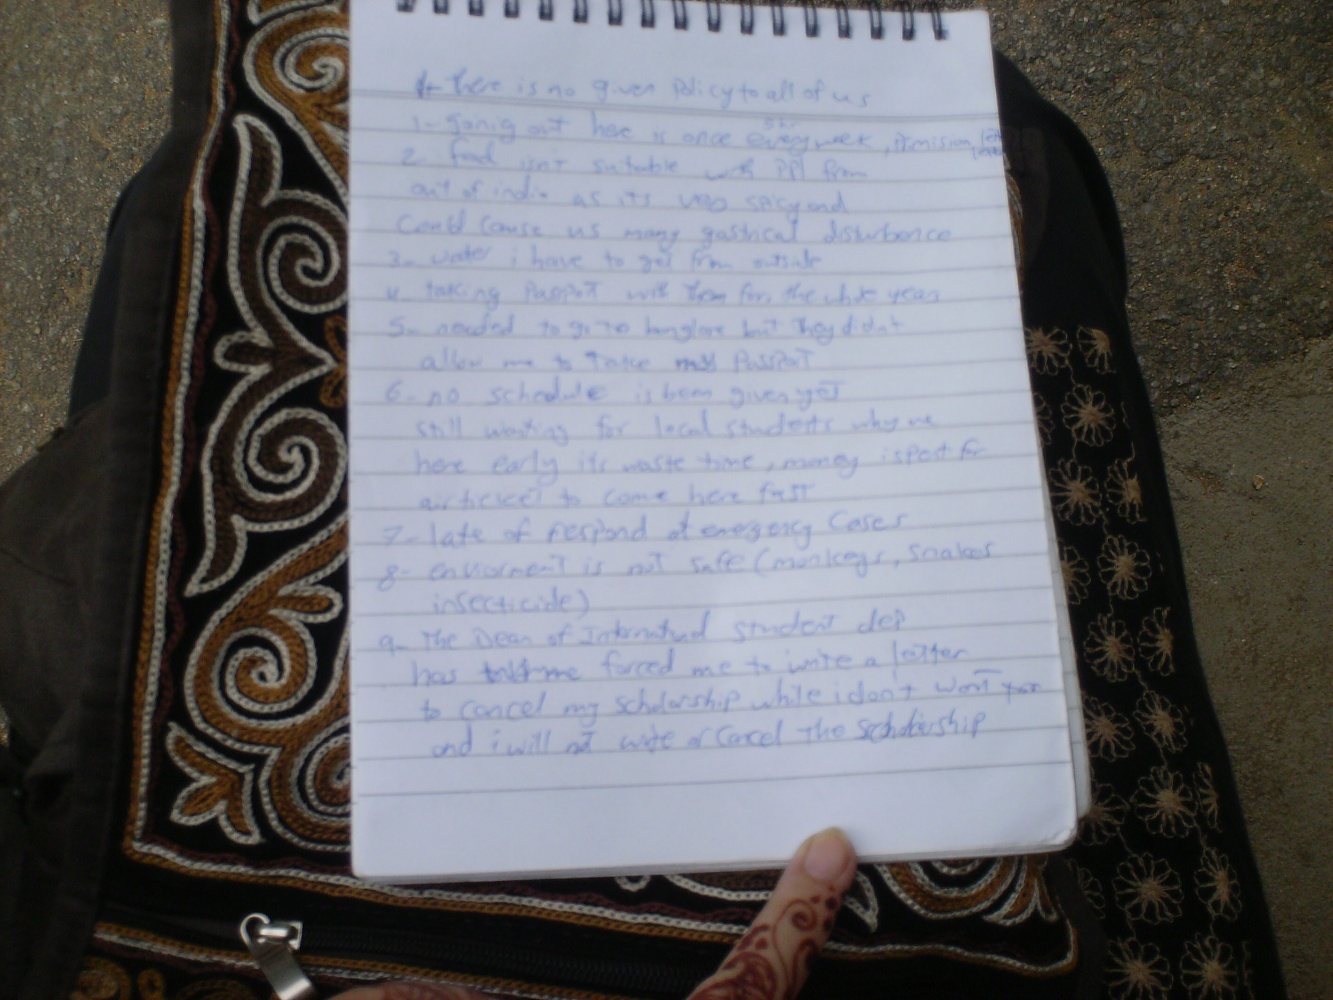 There is no given Policy to all of us
1- gonig out here is once every week, Prmision
2- food isn't suitable with PPl from
out of india as its
could cause us many gastrical disturbence
3- water i have to get from outside
4- taking Passpot with them for the whole year
5- needed to go to banglore but they didn't
allow me to take my Passpot
6- no schedule is been given yet
still waiting for local students why we
here early its waste time, money ispest for
airticket to come here first
7- late of respond at emergency Cases
8- enviorment is not safe (monkeys, snakes
insecticide)
9- The Dean of International student dep
has told me forced me to write a letter
to cancel my scholarship while i don't want
and i will not write or Cancel the scholership